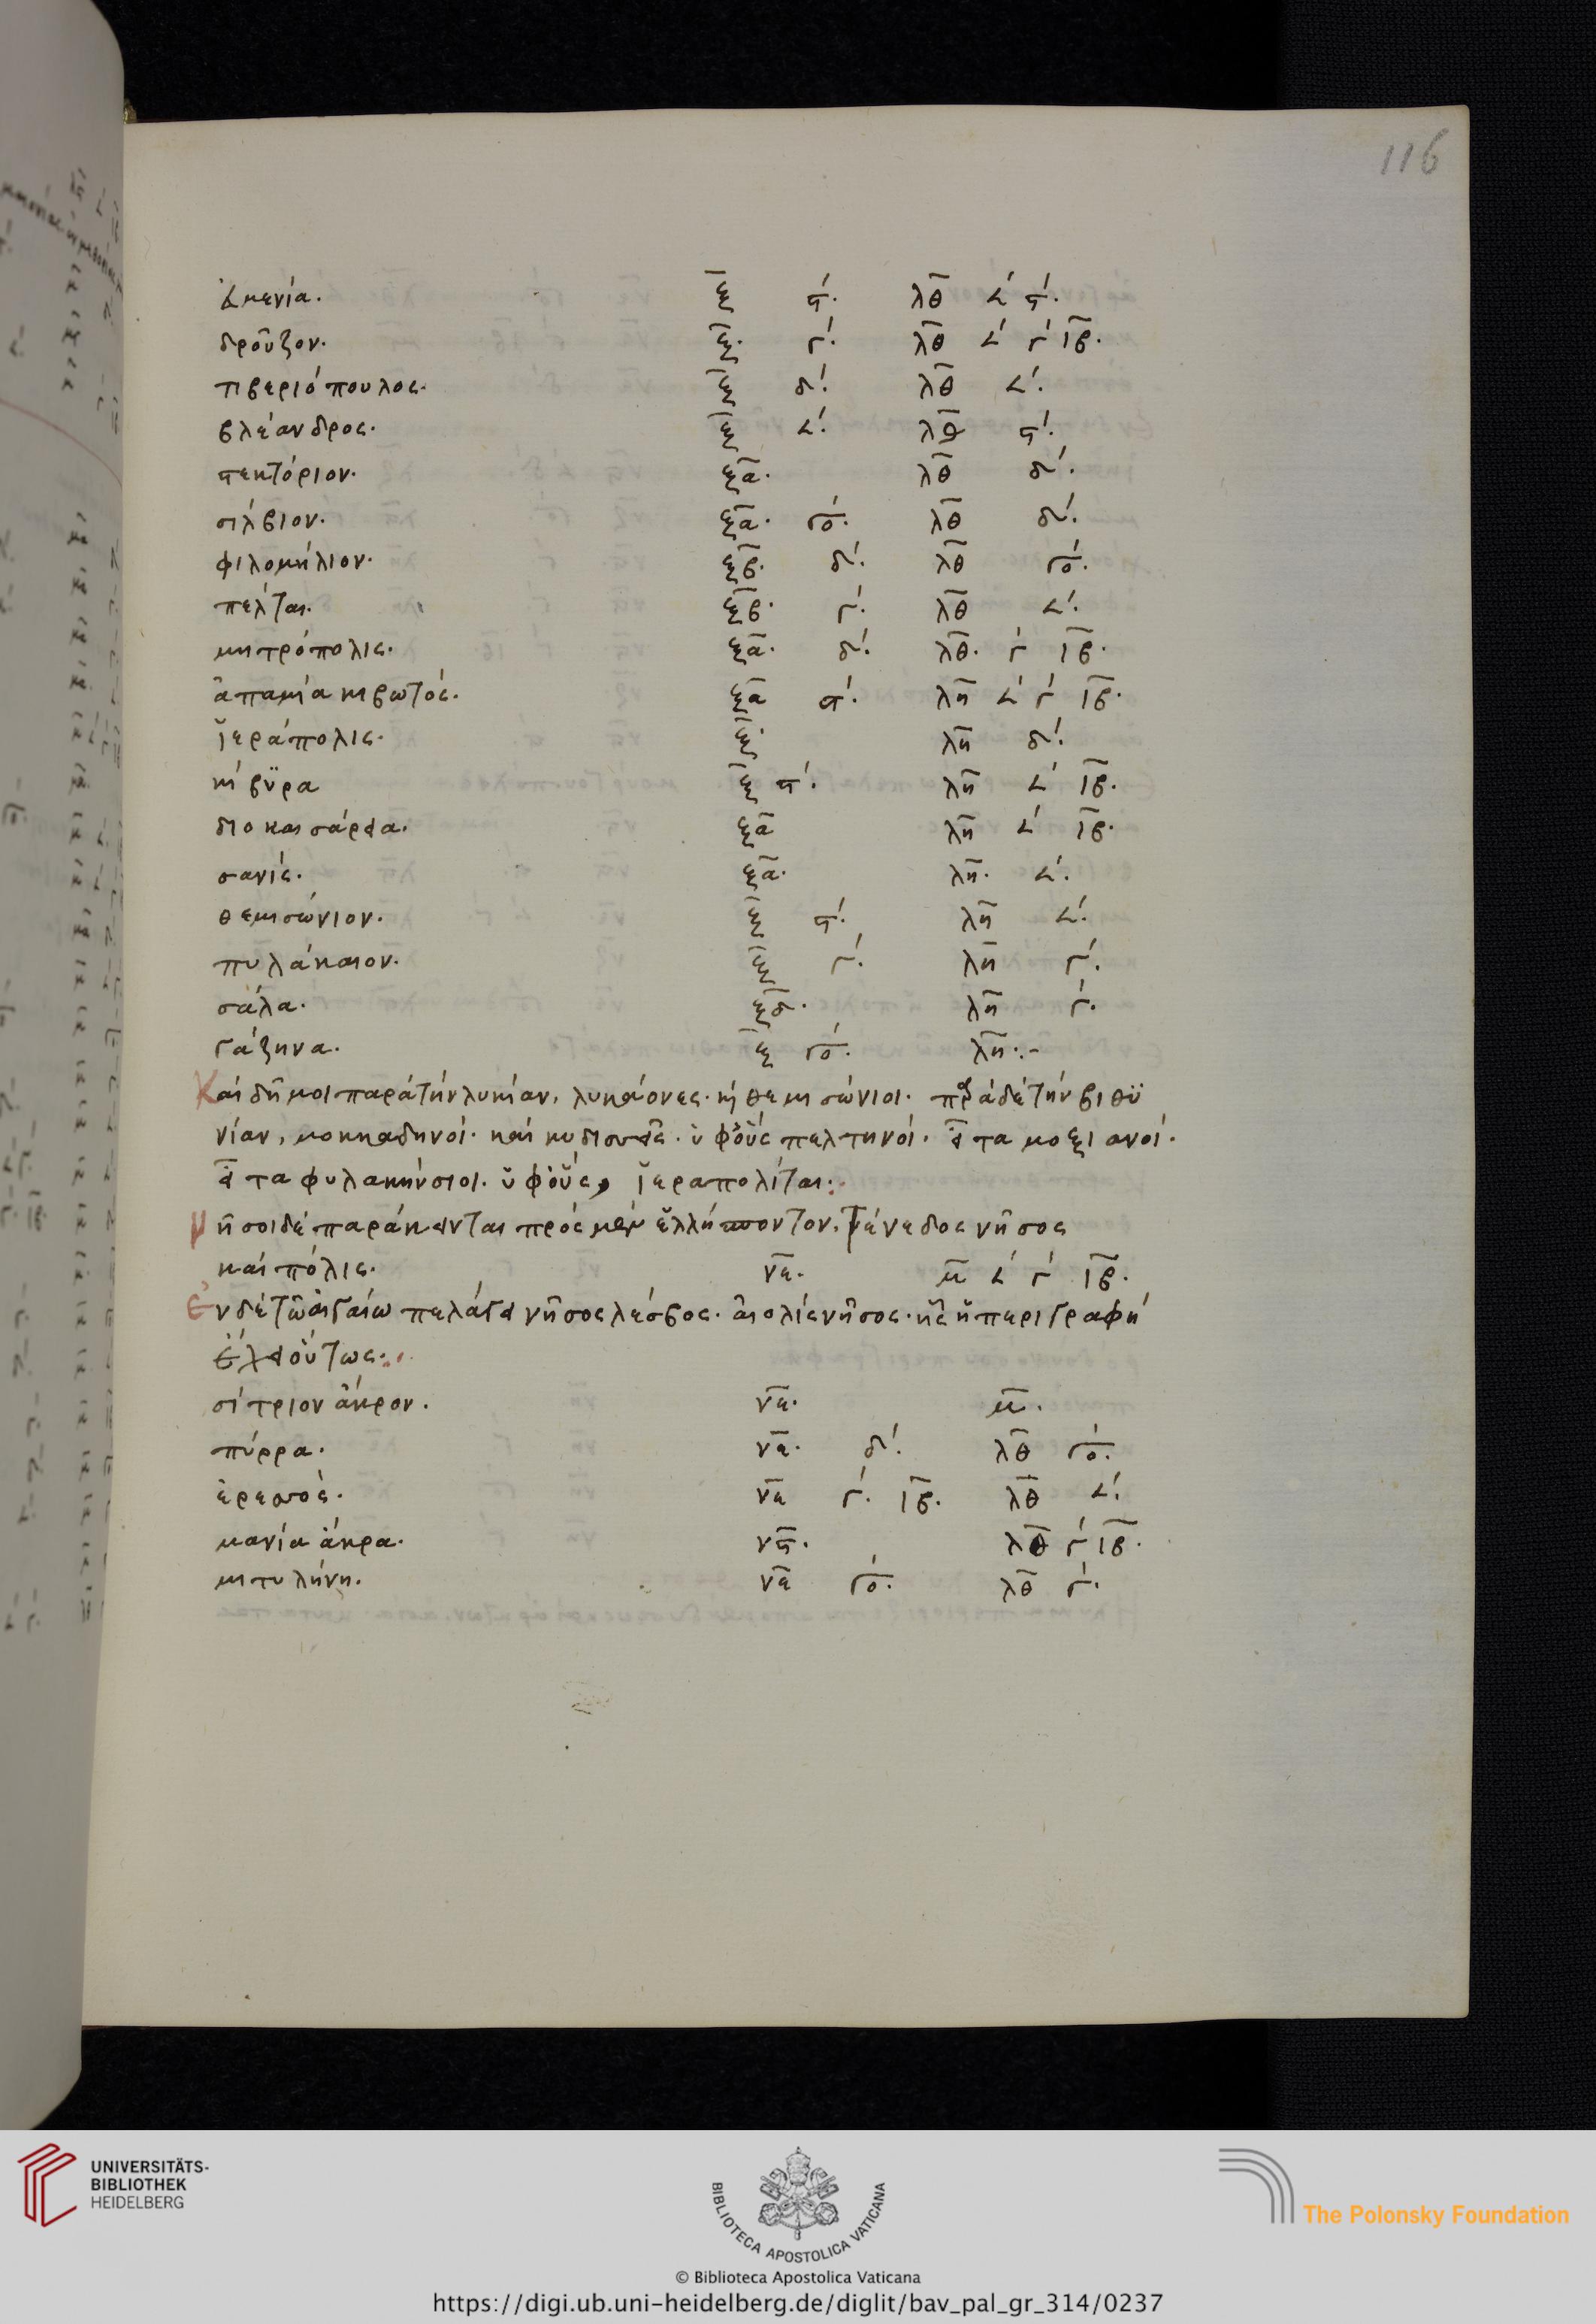 116
κμενία. ξ ϛ΄. λθ ∠΄ ϛ΄.
δροῦζον. ξ. γ΄. λθ ∠΄ γ΄ ιβ.
τιβεριόπουλος. ξ δ΄. λθ ∠΄.
βλέανδρος. ξ ∠΄. λθ ϛ΄.
πεκτόριον. ξα. λθ δ΄.
σίλβιον. ξα. γο΄. λθ δ΄.
φιλομήλιον. ξβ. δ΄. λθ γο΄.
πέλται. ξβ. γ΄. λθ ∠΄.
μητρόπολις. ξα. δ΄. λθ. γ΄ ιβ.
ἀπαμία κιβωτός. ξα ϛ΄. λη ∠΄ γ΄ ιβ.
ἱεράπολις. ξ. λη δ΄.
κίβϋρα ξ ϛ΄. λη ∠΄ ιβ.
διοκαισάρεια. ξα λη ∠΄ ιβ.
σανίς. ξα. λη. ∠΄.
θεμισώνιον. ξ ϛ΄. λη ∠΄.
πυλάκαιον. ξ γ΄. λη γ΄.
σάλα. ξδ. λη γ΄.
γάζηνα. ξ γο΄. λη:-
Καὶ δῆμοι παρὰ τὴν λυκίαν, λυκάονες. κὶ θεμισώνιοι. πρὰ δὲ τὴν βιθϋ
νίαν, μοκκαδηνοί. καὶ κυδισσεῖς. ὑφ' οὓς πελτηνοί. εἶτα μοξιανοί.
εἶτα φυλακήνσιοι. ὑφ' οὓς, ἱεραπολῖται:
νῆσοι δὲ παράκεινται πρὸς μὲν ἑλλήσποντον, Τένεδος νῆσος
καὶ πόλις. νε. μ ∠΄ γ΄ ιβ.
Ἐν δὲ τῶ αἰγαίω πελάγει νῆσος λέσβος. αἰολὶς νῆσος. ἧς ἡ περιγραφὴ
ἔχει οὕτως:
σίτριον ἄκρον. νε. μ.
πύρρα. νε. δ΄. λθ γο΄.
ἐρεσσός. νε γ΄. ιβ. λθ ∠΄.
μανία ἄκρα. νϛ. λθ γ΄ ιβ.
μιτυλήνη. νε γο΄. λθ γ΄.
UNIVERSITÄTS-
BIBLIOTHEK
HEIDELBERG
BIBLIOTECA APOSTOLICA VATICANA
© Biblioteca Apostolica Vaticana
The Polonsky Foundation
https://digi.ub.uni-heidelberg.de/diglit/bav_pal_gr_314/0237